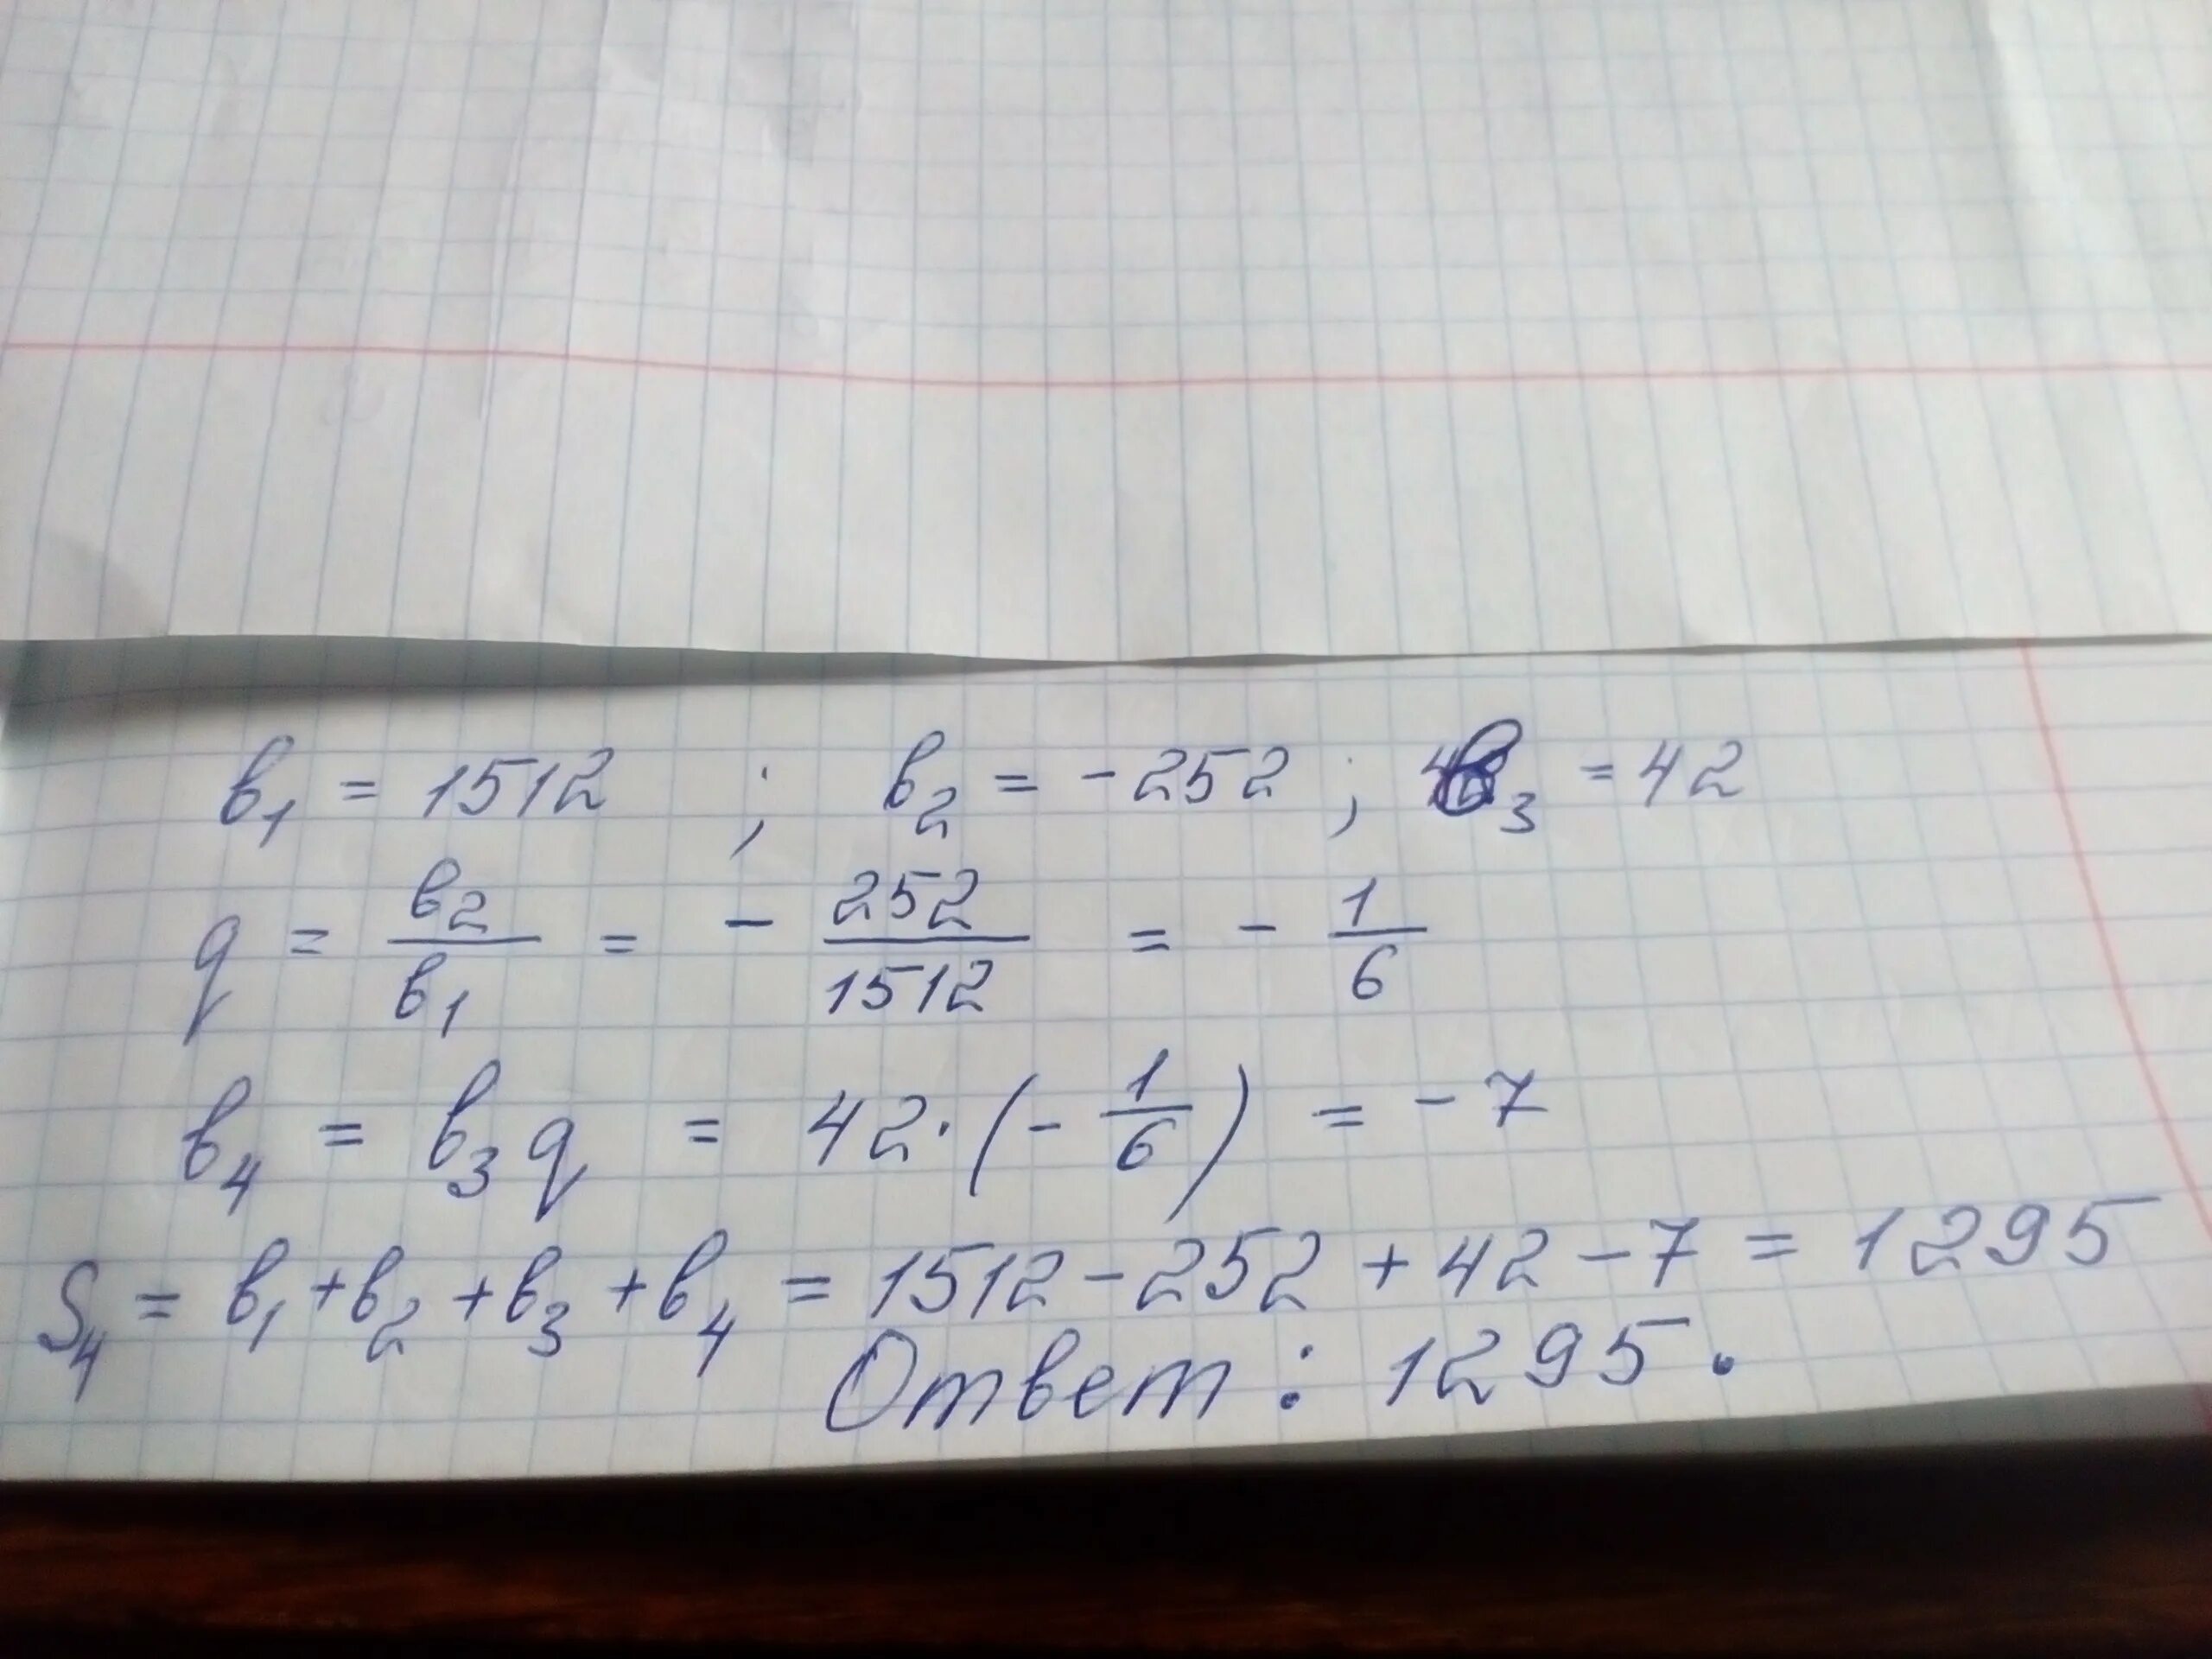 в₁ = 1512 ; в₂ = -252 ; в₃ = 42
q = в₂/в₁ = - 252/1512 = - 1/6
в₄ = в₃q = 42·(- 1/6) = - 7
S₄ = в₁ + в₂ + в₃ + в₄ = 1512 - 252 + 42 - 7 = 1295
Ответ: 1295.